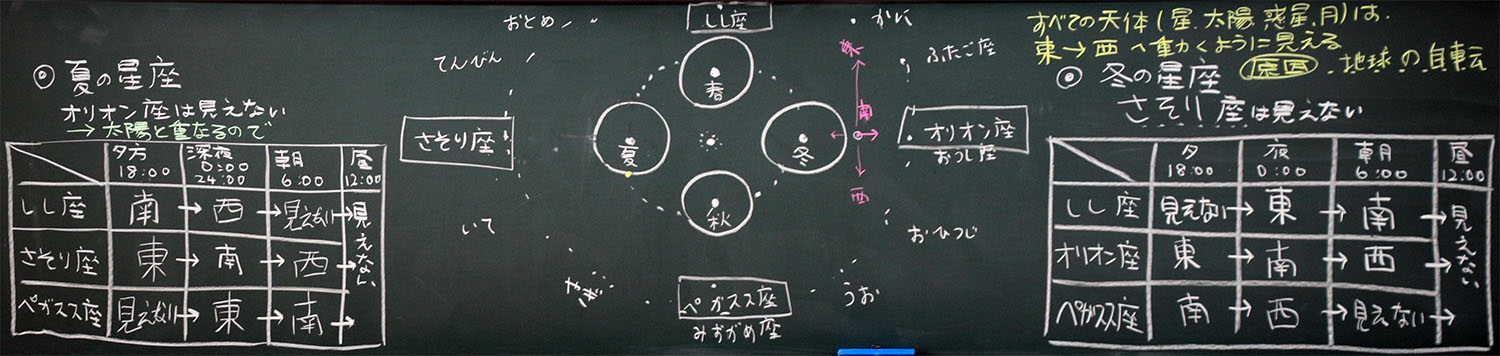 ◎ 夏の星座
オリオン座は見えない
→太陽と重なるので
夕方 18:00 深夜 0:00 24:00 朝 6:00 昼 12:00
しし座 南 → 西 → 見えない → 見えない
さそり座 東 → 南 → 西 →
ペガスス座 見えない → 東 → 南 →
しし座
おとめ
かに
てんびん
ふたご座
春
さそり座
夏
冬
オリオン座
おうし座
秋
いて
おひつじ
やぎ
うお
ペガスス座
みずがめ座
東
南
西
すべての天体(星、太陽、惑星、月)は、
東→西へ動くように見える
原因 地球の自転
◎ 冬の星座
さそり座は見えない
夕 18:00 夜 0:00 朝 6:00 昼 12:00
しし座 見えない → 東 → 南 → 見えない
オリオン座 東 → 南 → 西 →
ペガスス座 南 → 西 → 見えない →